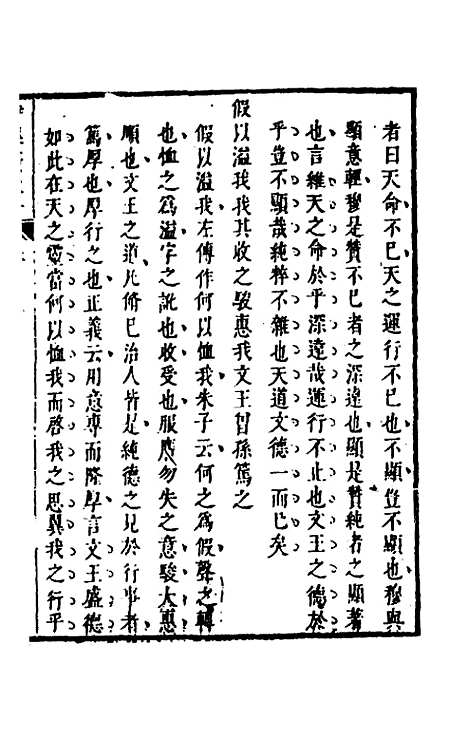 者曰天命不已天之運行不已也不顯豈不顯也穆與
顯意輕穆是贊不已者之深遠也顯是贊純者之顯著
也言維天之命於乎深遠哉運行不止也文王之德於
乎豈不顯哉純粹不雜也天道文德一而已矣
假以溢我我其收之駿惠我文王曾孫篤之
假以溢我左傳作何以恤我朱子云何之為假聲之轉
也恤之為溢字之訛也收受也服膺勿失之意駿大惠
順也文王之道凡脩已治人皆是純德之見於行事者
篤厚也厚行之也正義云用意專而隆厚言文王盛德
如此在天之靈當何以恤我而啓我之思異我之行乎